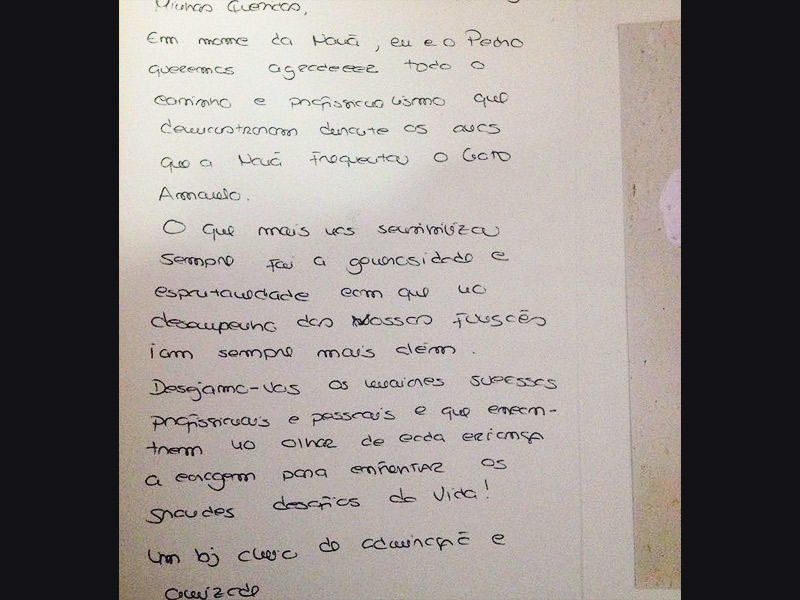 Minhas Queridas,
Em nome da Mauá, eu e o Pedro
queremos agradecer todo o
carinho e profissionalismo que
demonstraram durante os anos
que a Mauá frequentou o Gato
Amarelo.
O que mais nos sensibilizou
sempre foi a generosidade e
espontaneidade com que no
desempenho das Vossas funções
iam sempre mais além.
Desejamo-vos os maiores sucessos
profissionais e pessoais e que encon-
trem no olhar de cada criança
a coragem para enfrentar os
grandes desafios da Vida!
Um bj cheio de admiração e
amizade